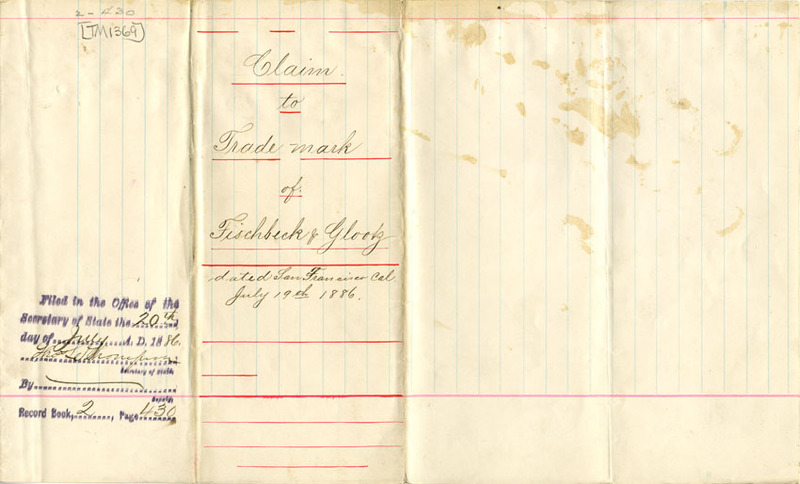 2-430
[TM1369]
Claim
to
Trade-mark
of
Fischbeck & Glootz
dated San Francisco Cal
July 19th 1886.
Filed in the Office of the
Secretary of State the 20th
day of July A. D. 1886.
Secretary of State.
By
Deputy.
Record Book, 2, Page 430